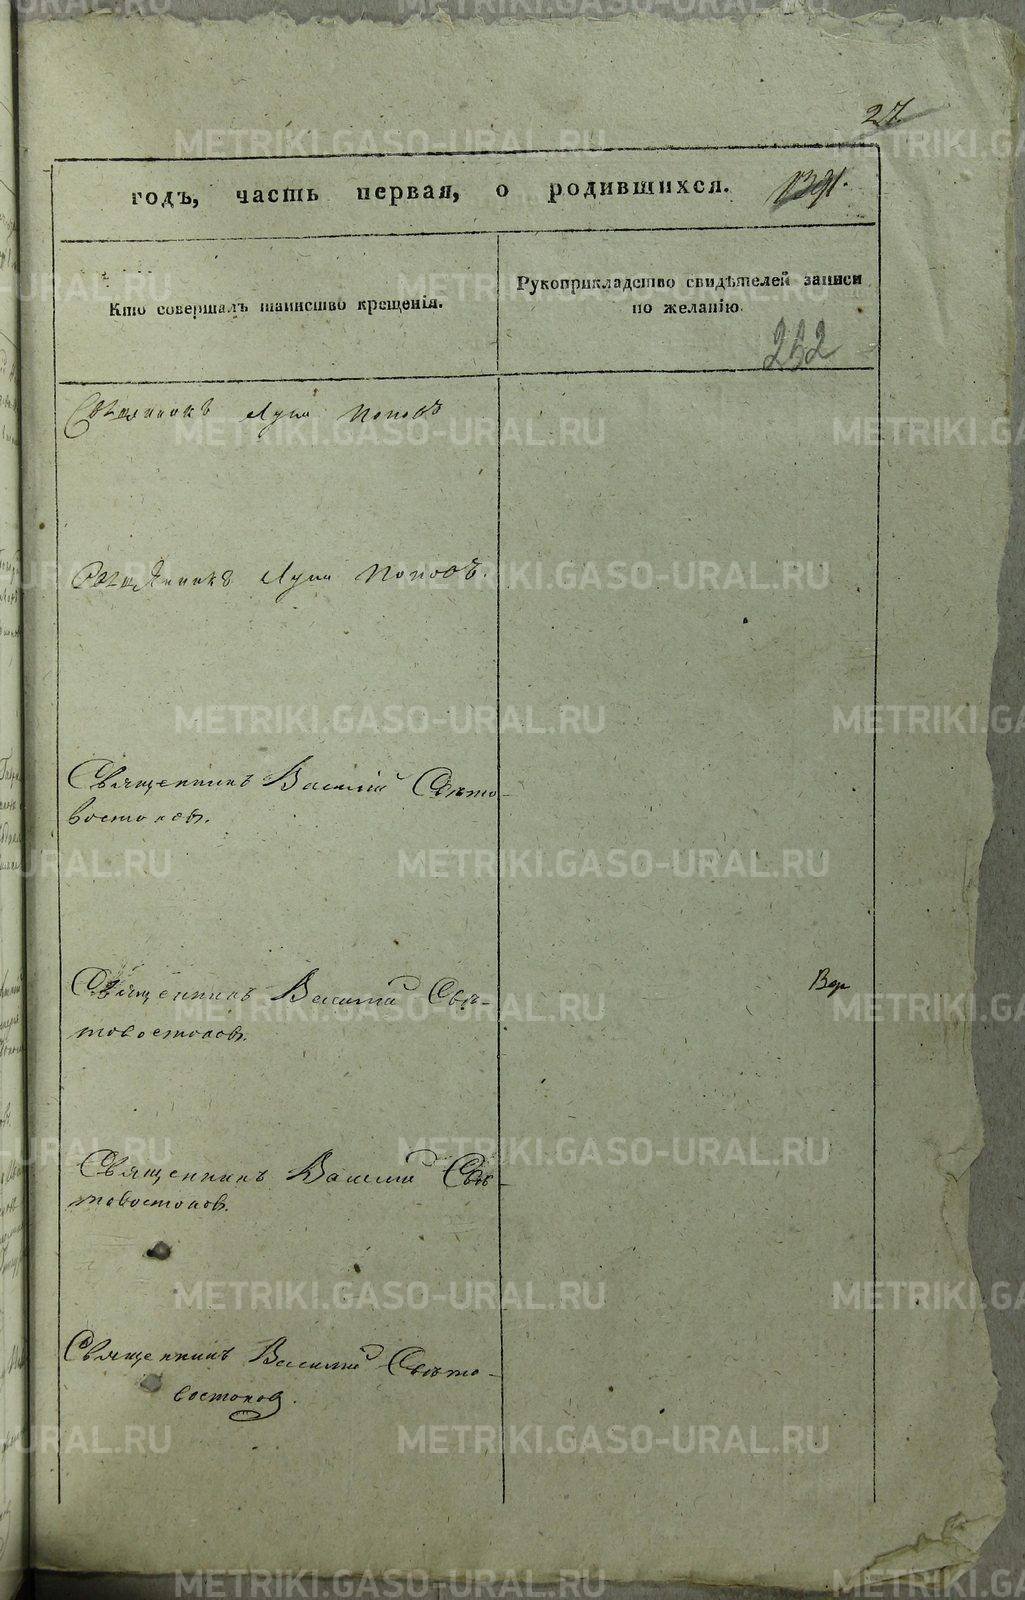 27.
годъ, часть первая, о родившихся.
Кто совершалъ таинство крещенія.
Рукоприкладство свидѣтелей записи
по желанію.
232
Священникъ Лука Поповъ
Священникъ Лука Поповъ.
Священникъ Василій Свѣто-
востоковъ.
Священникъ Василій Свѣ-
товостоковъ.
Вер
Священникъ Василій Свѣ-
товостоковъ.
Священникъ Василій Свѣто-
востоковъ.
METRIKI.GASO-URAL.RU